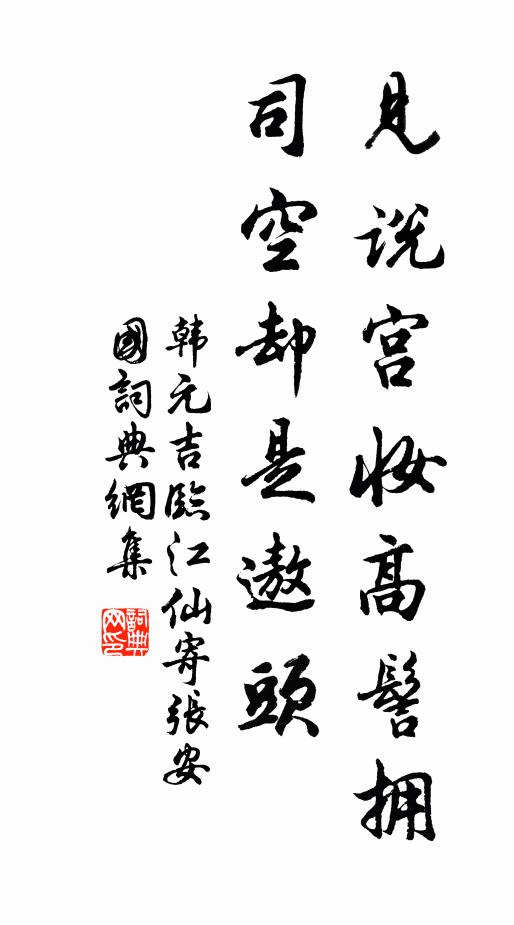 見说宫妆高髻拥
司空却是遨頭
韩元吉臨江仙寄張安
國詞典網集
詞典網印